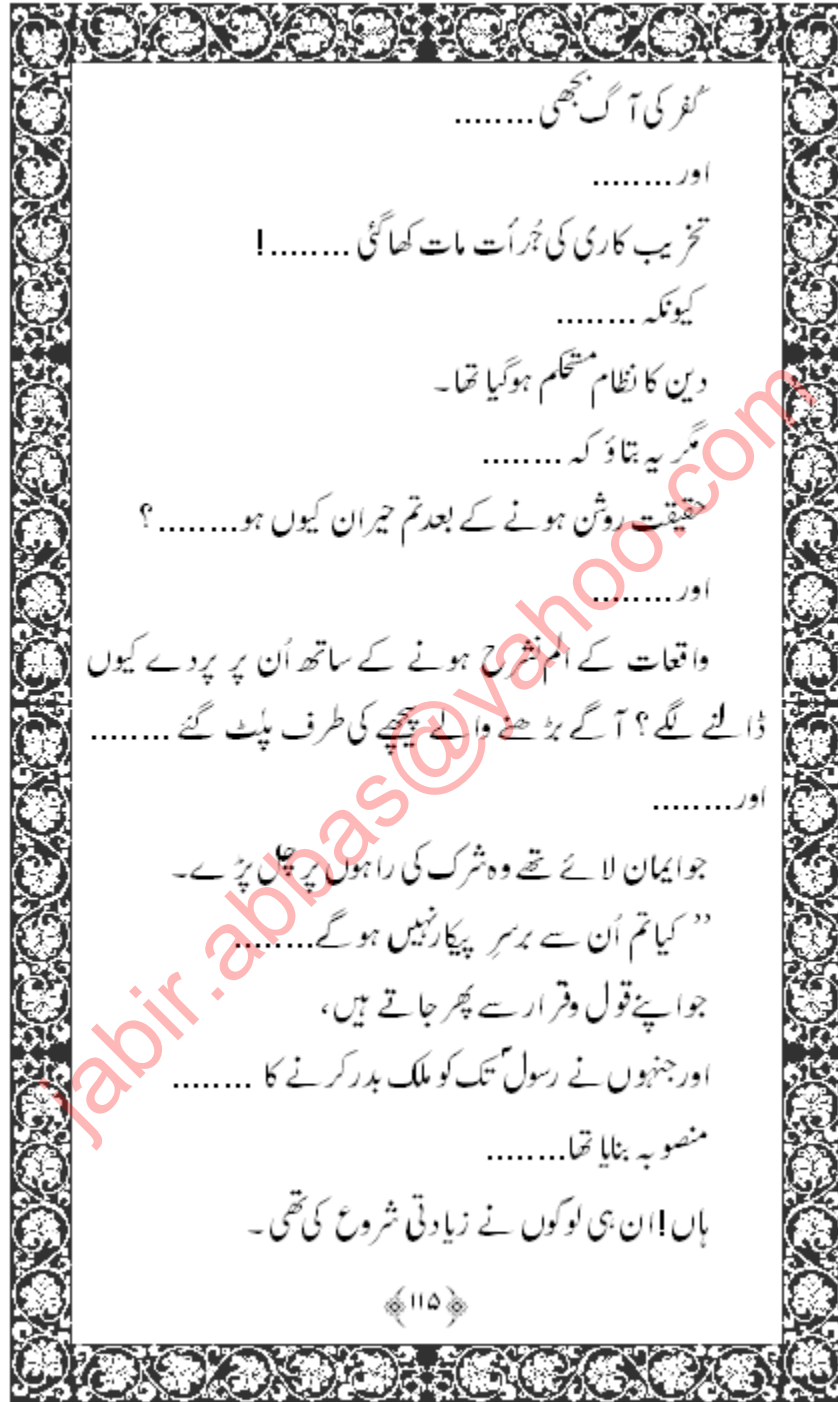 کُفر کی آگ بُجھی........
اور........
تخریب کاری کی جُرأت مات کھا گئی ........!
کیونکہ ........
دین کا نظام مستحکم ہوگیا تھا۔
مگر یہ بتاؤ کہ ........
حقیقت روشن ہونے کے بعد تم حیران کیوں ہو........؟
اور........
واقعات کے الم نشرح ہونے کے ساتھ اُن پر پردے کیوں
ڈالنے لگے؟ آگے بڑھنے والے پیچھے کی طرف پلٹ گئے ........
اور........
جو ایمان لائے تھے وہ شرک کی راہوں پر چل پڑے۔
”کیا تم اُن سے برسرِ پیکار نہیں ہوگے........
جو اپنے قول وقرار سے پھر جاتے ہیں،
اور جنہوں نے رسولؐ تک کو ملک بدر کرنے کا ........
منصوبہ بنایا تھا........
ہاں! ان ہی لوگوں نے زیادتی شروع کی تھی۔
﴿۱۱۵﴾
jabir.abbas@yahoo.com